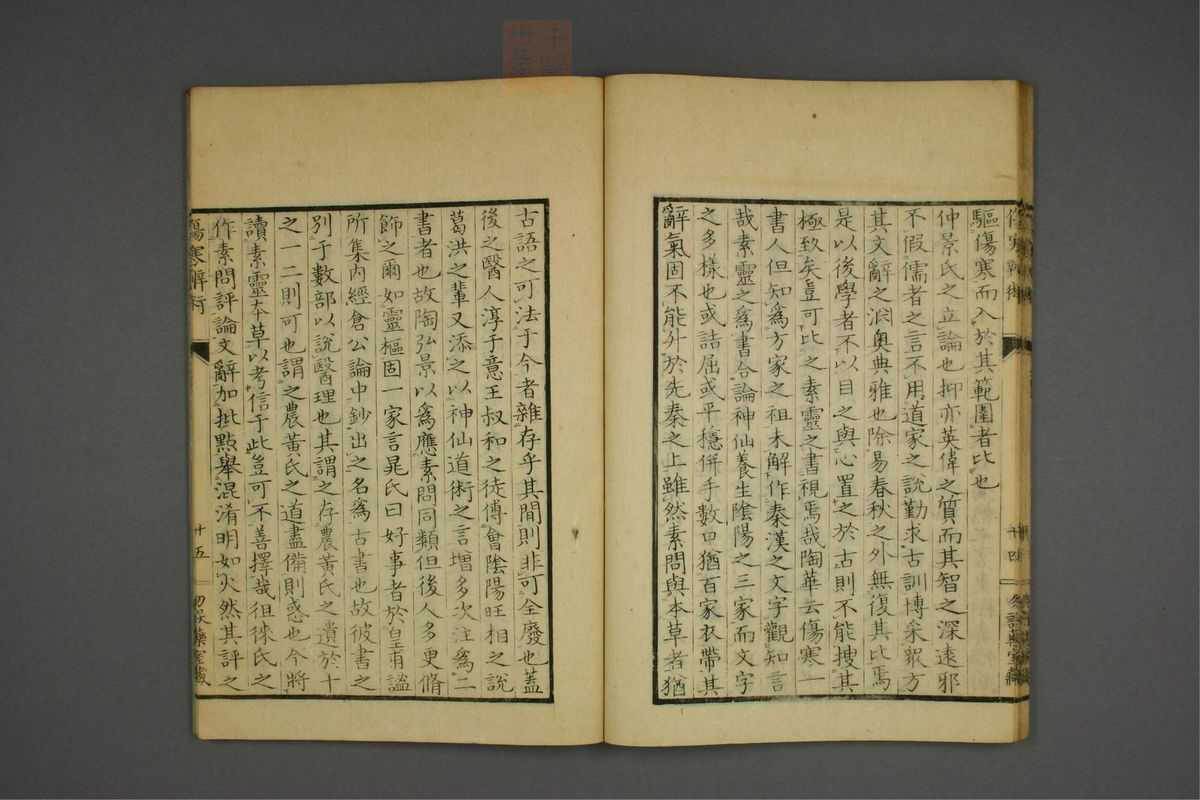 傷寒辨術
十四
驅傷寒而入於其範圍者比也
仲景氏之立論也抑亦英偉之質而其智之深遠邪
不假儒者之言不用道家之説勤求古訓博采衆方
其文辭之淵奧典雅也除易春秋之外無復其比焉
是以後學者不以目之與心置之於古則不能搜其
極致矣豈可比之素靈之書視焉哉陶華云傷寒一
書人但知爲方家之祖未解作秦漢之文字觀知言
哉素靈之爲書合論神仙養生陰陽之三家而文字
之多樣也或詰屈或平穩併手數口猶百家衣帶其
辭氣固不能升於先秦之上雖然素問與本草者猶
古語之可法于今者雜存乎其間則非可全廢也蓋
後之醫人淳于意王叔和之徒傅會陰陽旺相之説
葛洪之輩又添之以神仙道術之言增多次注爲二
書者也故陶弘景以爲應素問同類但後人多更脩
飾之爾如靈樞固一家言晁氏曰好事者於皇甫謐
所集内經倉公論中鈔出之名爲古書也故彼書之
別于數部以説醫理也其謂之存農黃氏之遺於十
之一二則可也謂之農黃氏之道盡備則惑也今將
讀素靈本草以考信于此豈可不善擇哉徂徠氏之
作素問評論文辭加批點舉混淆明如火然其評之
傷寒辨術
十五